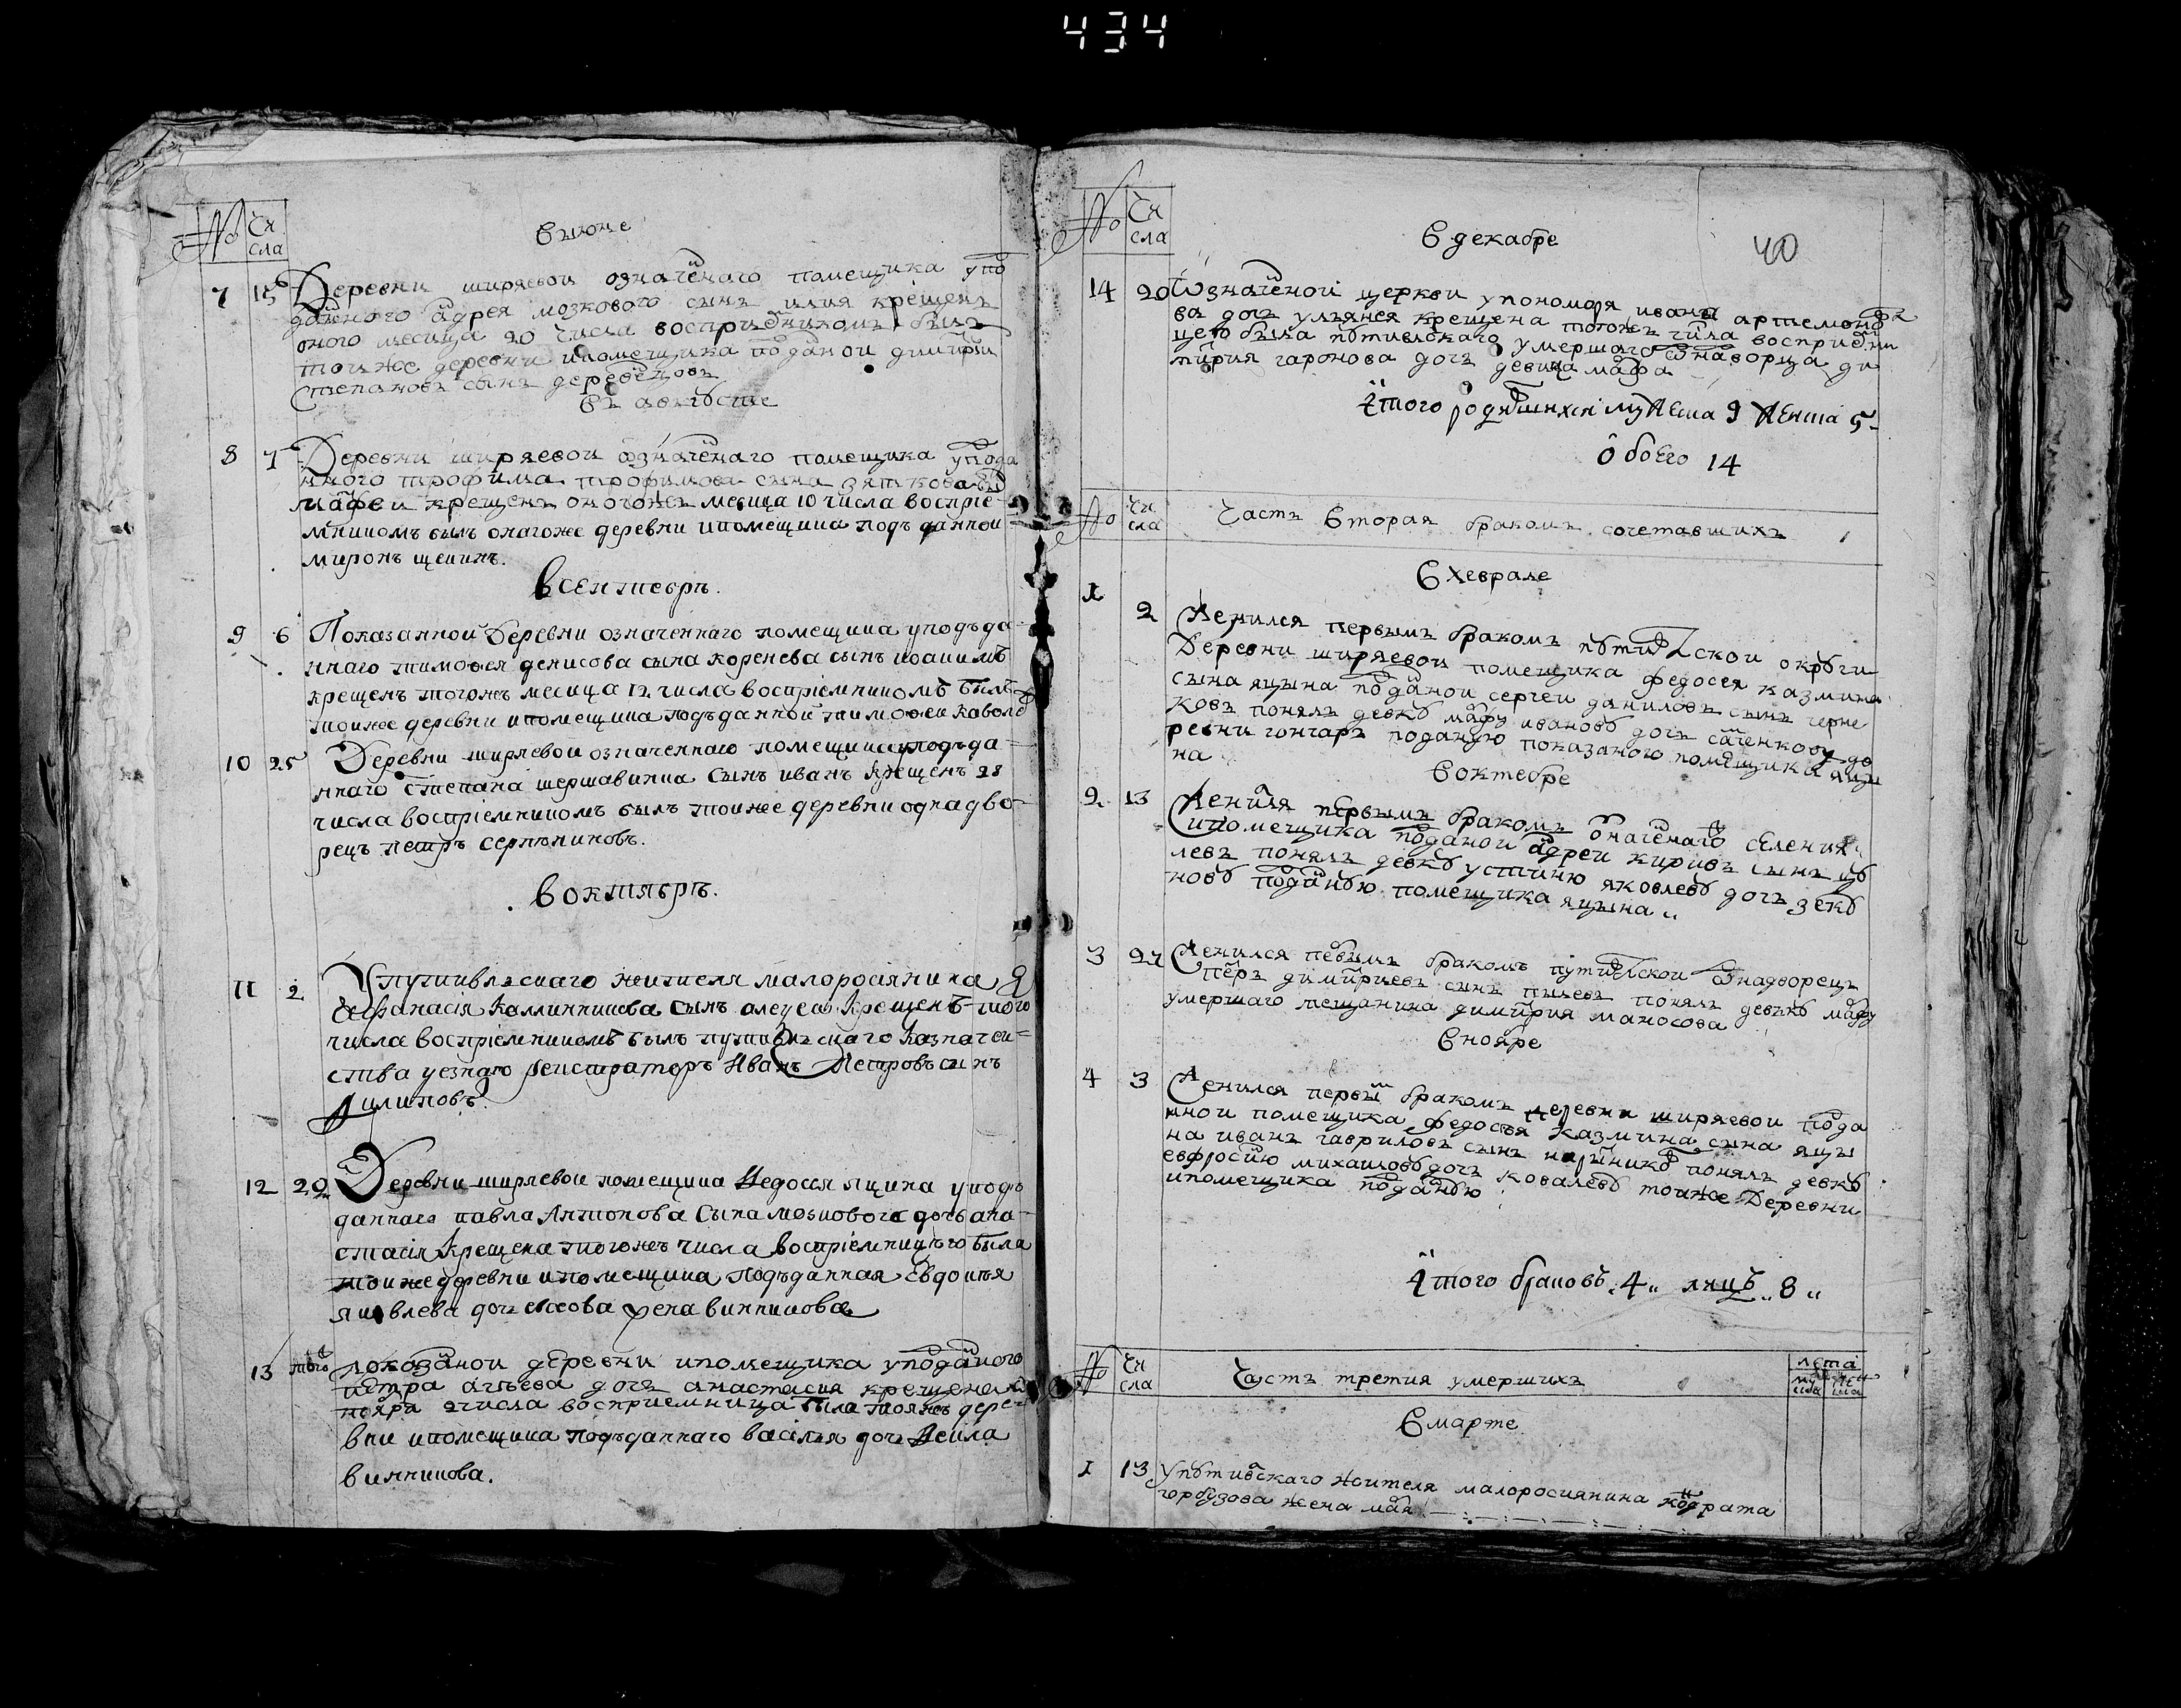 434
№ Чи
сла
В июне
7 15 Деревни ширяевои означенаго помещика упо
даного адрея мозкового сынъ илия крещенъ
оного месеца 20 числа восприемникомъ былъ
тоиже деревни ипомещика поданои димитри
Степановъ сынъ
Въ августе
8 7 Деревни ширяевои означенаго помещика упода
нного трофима трофимова сына зяткова сы
мафеи крещенъ оногожъ месяца 10 числа воспрiе-
мникомъ былъ оиагоже деревни ипомещика подъ данной
миронъ щекинъ.
Всентябрѣ.
9 6 Показанной деревни означеннаго помещика уподъда-
ннаго тимофея денисова сына коренева сынъ иоакимъ
крещенъ тогожъ месяца 12 числа воспрiемникомъ былъ
тоиже деревни ипомещика подъданной тимофеи ковале
10 25 Деревни ширяевои означеннаго помещика уподъда=
ннаго степана шершавина сынъ иванъ крещенъ 28
числа воспрiемникомъ былъ тоиже деревни однадво-
рецъ петръ серпѣниковъ.
Воктябрѣ.
11 2 Упутивлѣскаго жителя малоросiянина
Афанасiя Калинникова сынъ алеѯеи крещенъ того
числа воспрiемникомъ былъ путивлѣскаго казначеи=
ства уезнаго регистраторъ Иванъ Петровъ синъ
Акимовъ.
12 29 Деревни ширяевои помещика Федосея яцина уподъ
даннаго павла Антонова сына мозкового дочъ ана-
стасiя крещена тогожъ числа воспрiемницею была
тоиже деревни ипомещика подъданная Евдокѣя
яковлева дочъ жена винникова
13 того показанои деревни ипомещика уподаного
петра дочъ анастасия крещена
ноября 2 числа восприемница была тояжъ дере-
вни ипомещика подъданнаго васiлья дочъ
винникова.
№ Чи
сла
В декабре
40
14 20 Означеной церкви упономаря ивана артемонова
дочь ульянея крещена тогожъ числа восприемни
цею была путивлскаго умершаго однаворца ди
митрия гаронова дочъ девица марфа
Итого родившихся мужеска 9 женска 5
обоего 14
№ Чи
сла
Часть вторая бракомъ сочетавшихъ
В хеврале
1 2 Женился первымъ бракомъ путивлской округи
Деревни ширяевои помещика федосея казмина
сына яцына поданои сергеи даниловъ сынъ черне
ковъ понялъ девку марфу иванову дочъ саченкову де
ревни гончаръ поданую показаного помещика яцы
на
В октебре
2 13 Женился первымъ бракомъ означенаго селения
ипомещика поданои адреи кириевъ сынъ
левъ понялъ девку устиню яковлеву дочъ зеку
нову поданую помещика яцына
3 27 Женился первымъ бракомъ путивлскои однадворецъ
петръ димитриевъ синъ пыхевъ понялъ девъку марфу
умершаго мещанина димитрия маносова
В ноябре
4 3 Женился первым бракомъ деревни ширяевои пода
нной помещика федосея казмина сына яцы
на иванъ гавриловъ сынъ понялъ девку
евфросинию михаилову дочъ ковалеву тоиже деревни
ипомещика поданую
Итого браковъ 4 лицъ 8
№ Чи
сла
Часть третия умершихъ
лета
му
ска
же
ска
В марте
1 13 Упутивлскаго жителя малоросиянина кодрата
горбузова жена мария